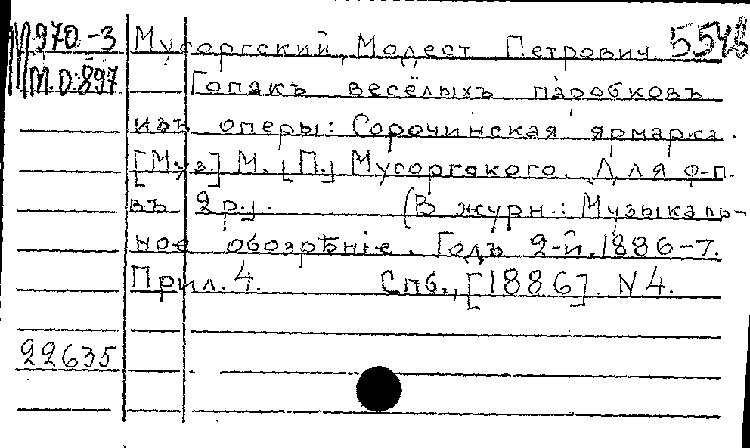 М970-3 Мусоргский, Модест Петрович 5546
М.О.897 Гопакъ весёлыхъ паробковъ
изъ оперы: Сорочинская ярмарка.
[Муз] М. [П.] Мусоргского. Для ф-п.
въ 2 р. (В журн.: Музыкаль-
ное обозрѣніе. Годъ 2-й. 1886-7.
Прил. 4. Спб., [1886]. N4.
22635